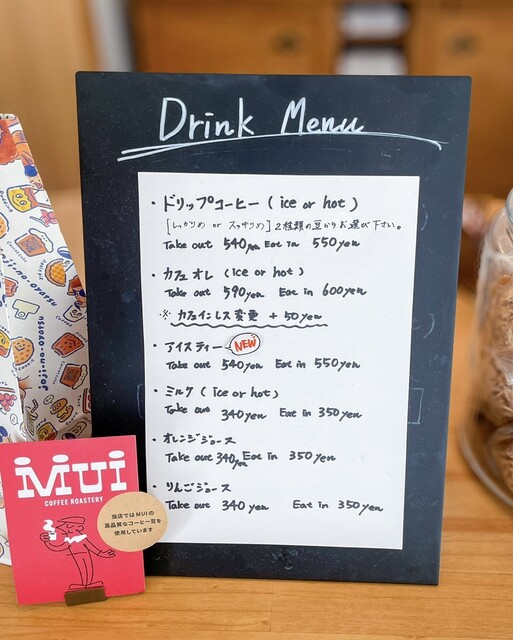 Drink Menu
・ドリップコーヒー (ice or hot)
[しっかりめ or スッキリめ] 2種類の豆からお選び下さい。
Take out 540yen Eat in 550yen
・カフェオレ (ice or hot)
Take out 590yen Eat in 600yen
※ カフェインレス変更 +50yen
・アイスティー NEW
Take out 540yen Eat in 550yen
・ミルク (ice or hot)
Take out 340yen Eat in 350yen
・オレンジジュース
Take out 340yen Eat in 350yen
・りんごジュース
Take out 340yen Eat in 350yen
MUI
COFFEE ROASTERY
当店ではMUIの
高品質なコーヒー豆を
使用しています
joji-no-oyatsu